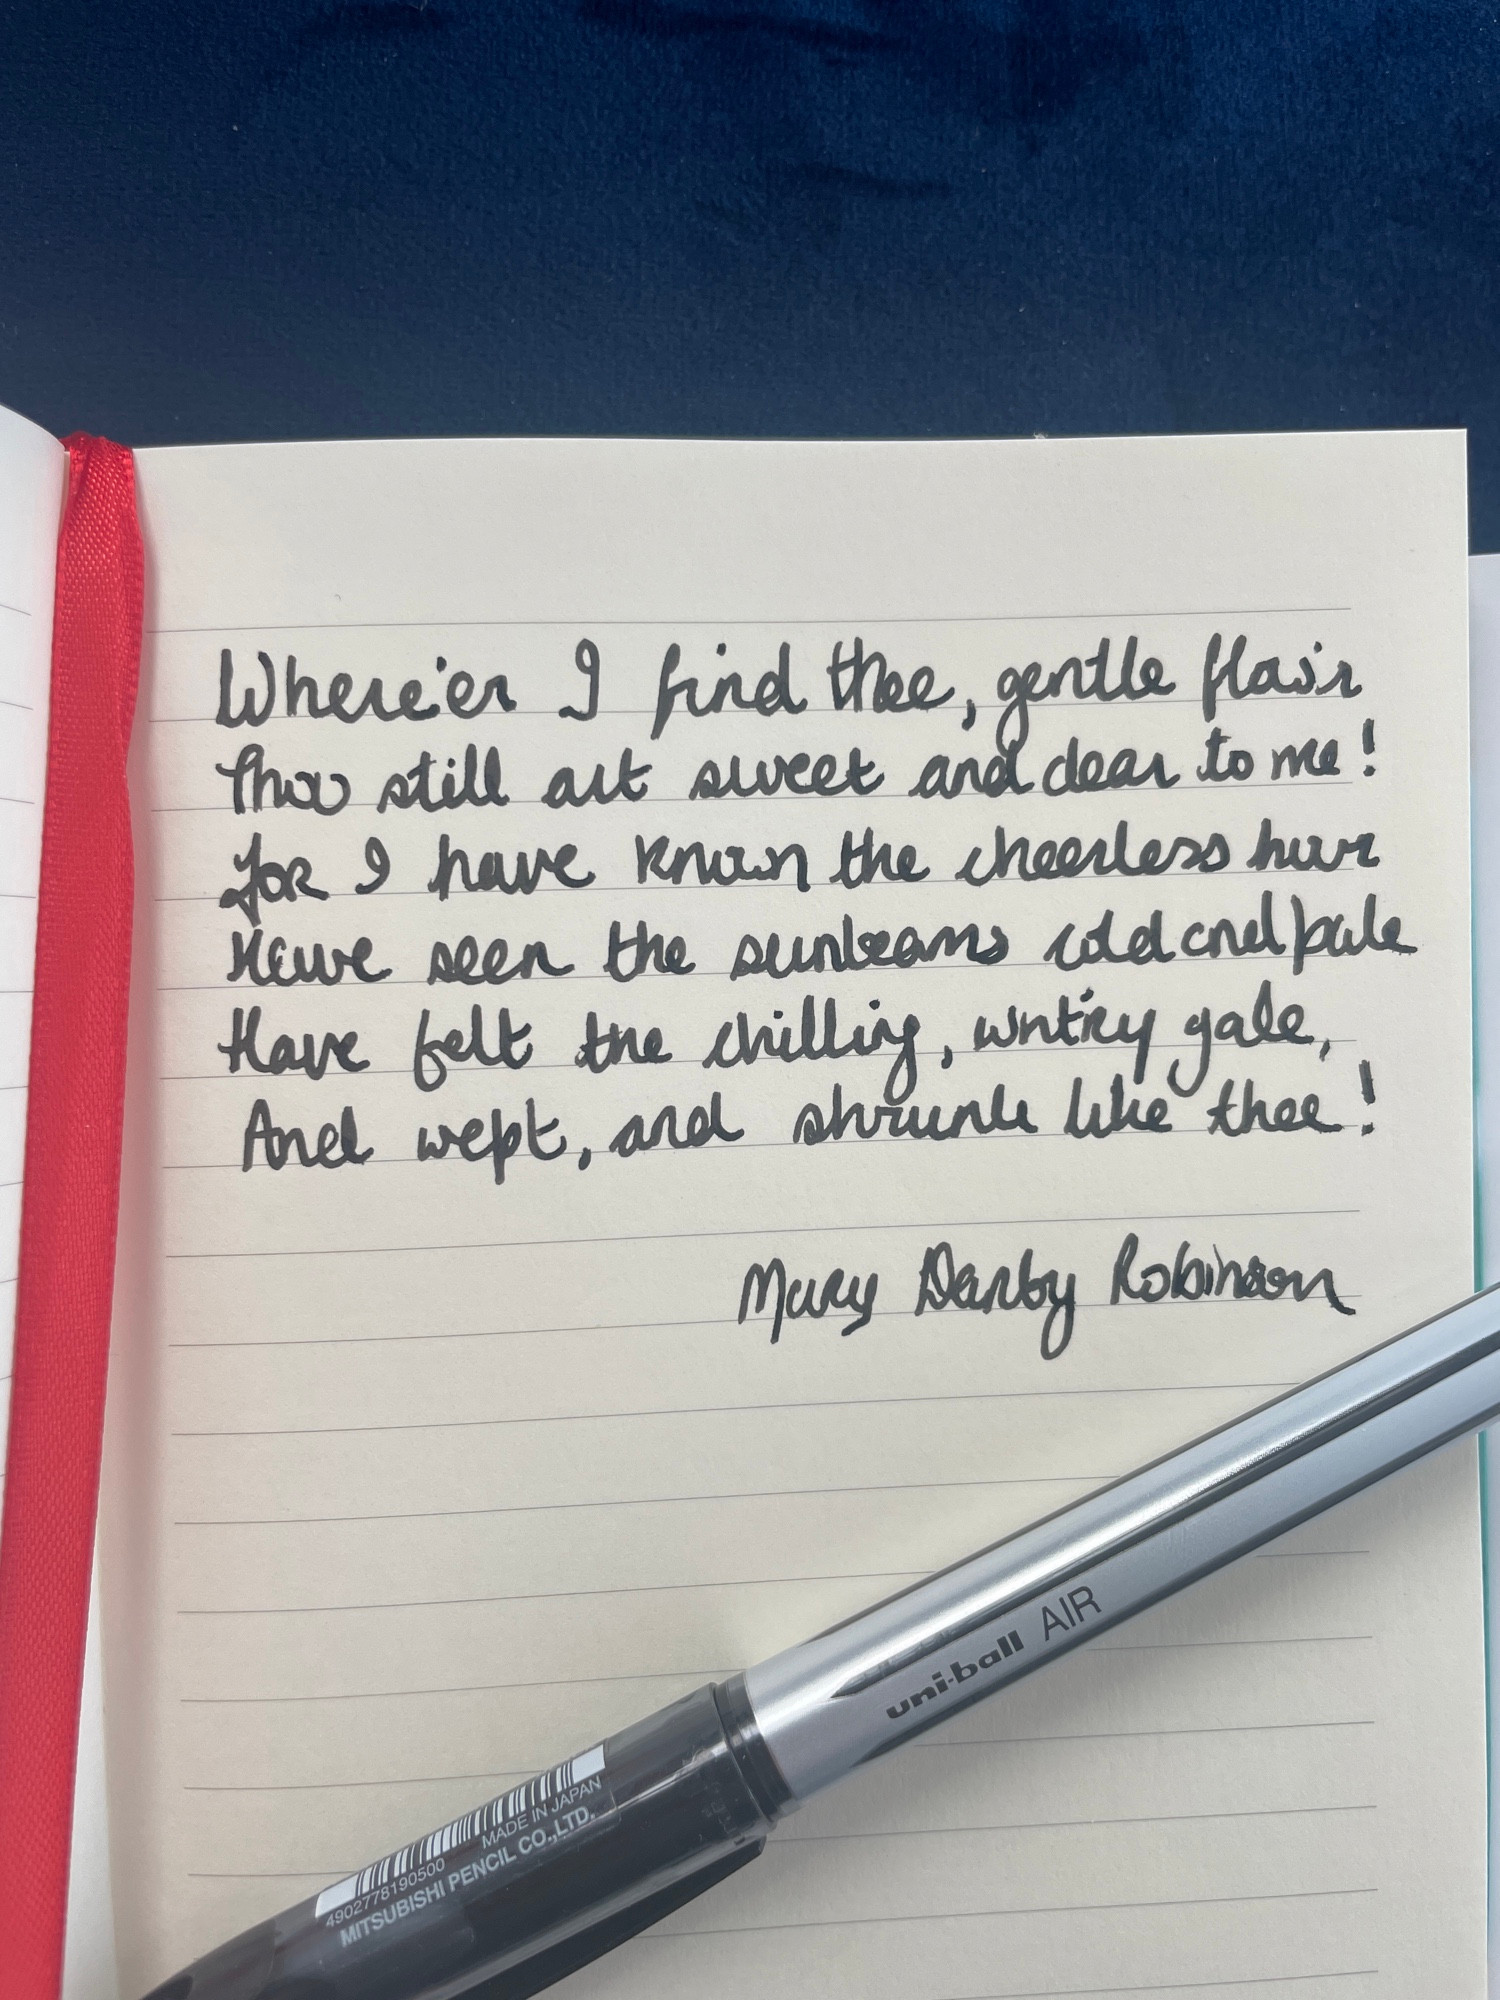 Where'er I find thee, gentle flow'r
Thou still art sweet and dear to me!
For I have known the cheerless hour
Have seen the sunbeams cold and pale
Have felt the chilling, wint'ry gale,
And wept, and shrunk like thee!
Mary Darby Robinson
uni-ball AIR
MADE IN JAPAN
4902778190500
MITSUBISHI PENCIL CO.,LTD.